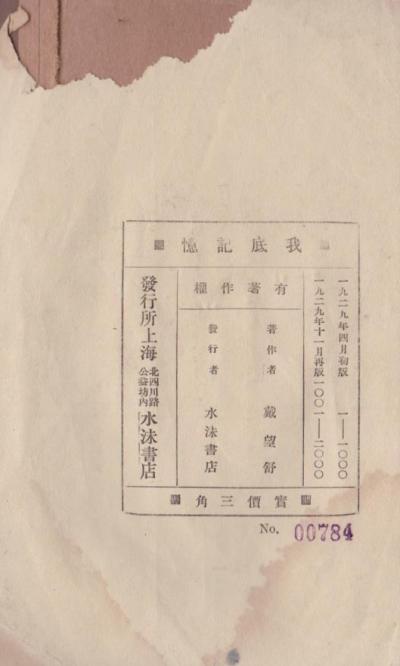 我底記憶
一九二九年四月初版 一——一〇〇〇
一九二九年十一月再版 一〇〇一——二〇〇〇
有著作權
著作者 戴望舒
發行者 水沫書店
發行所 上海 北四川路公益坊內 水沫書店
實價三角
No. 00784